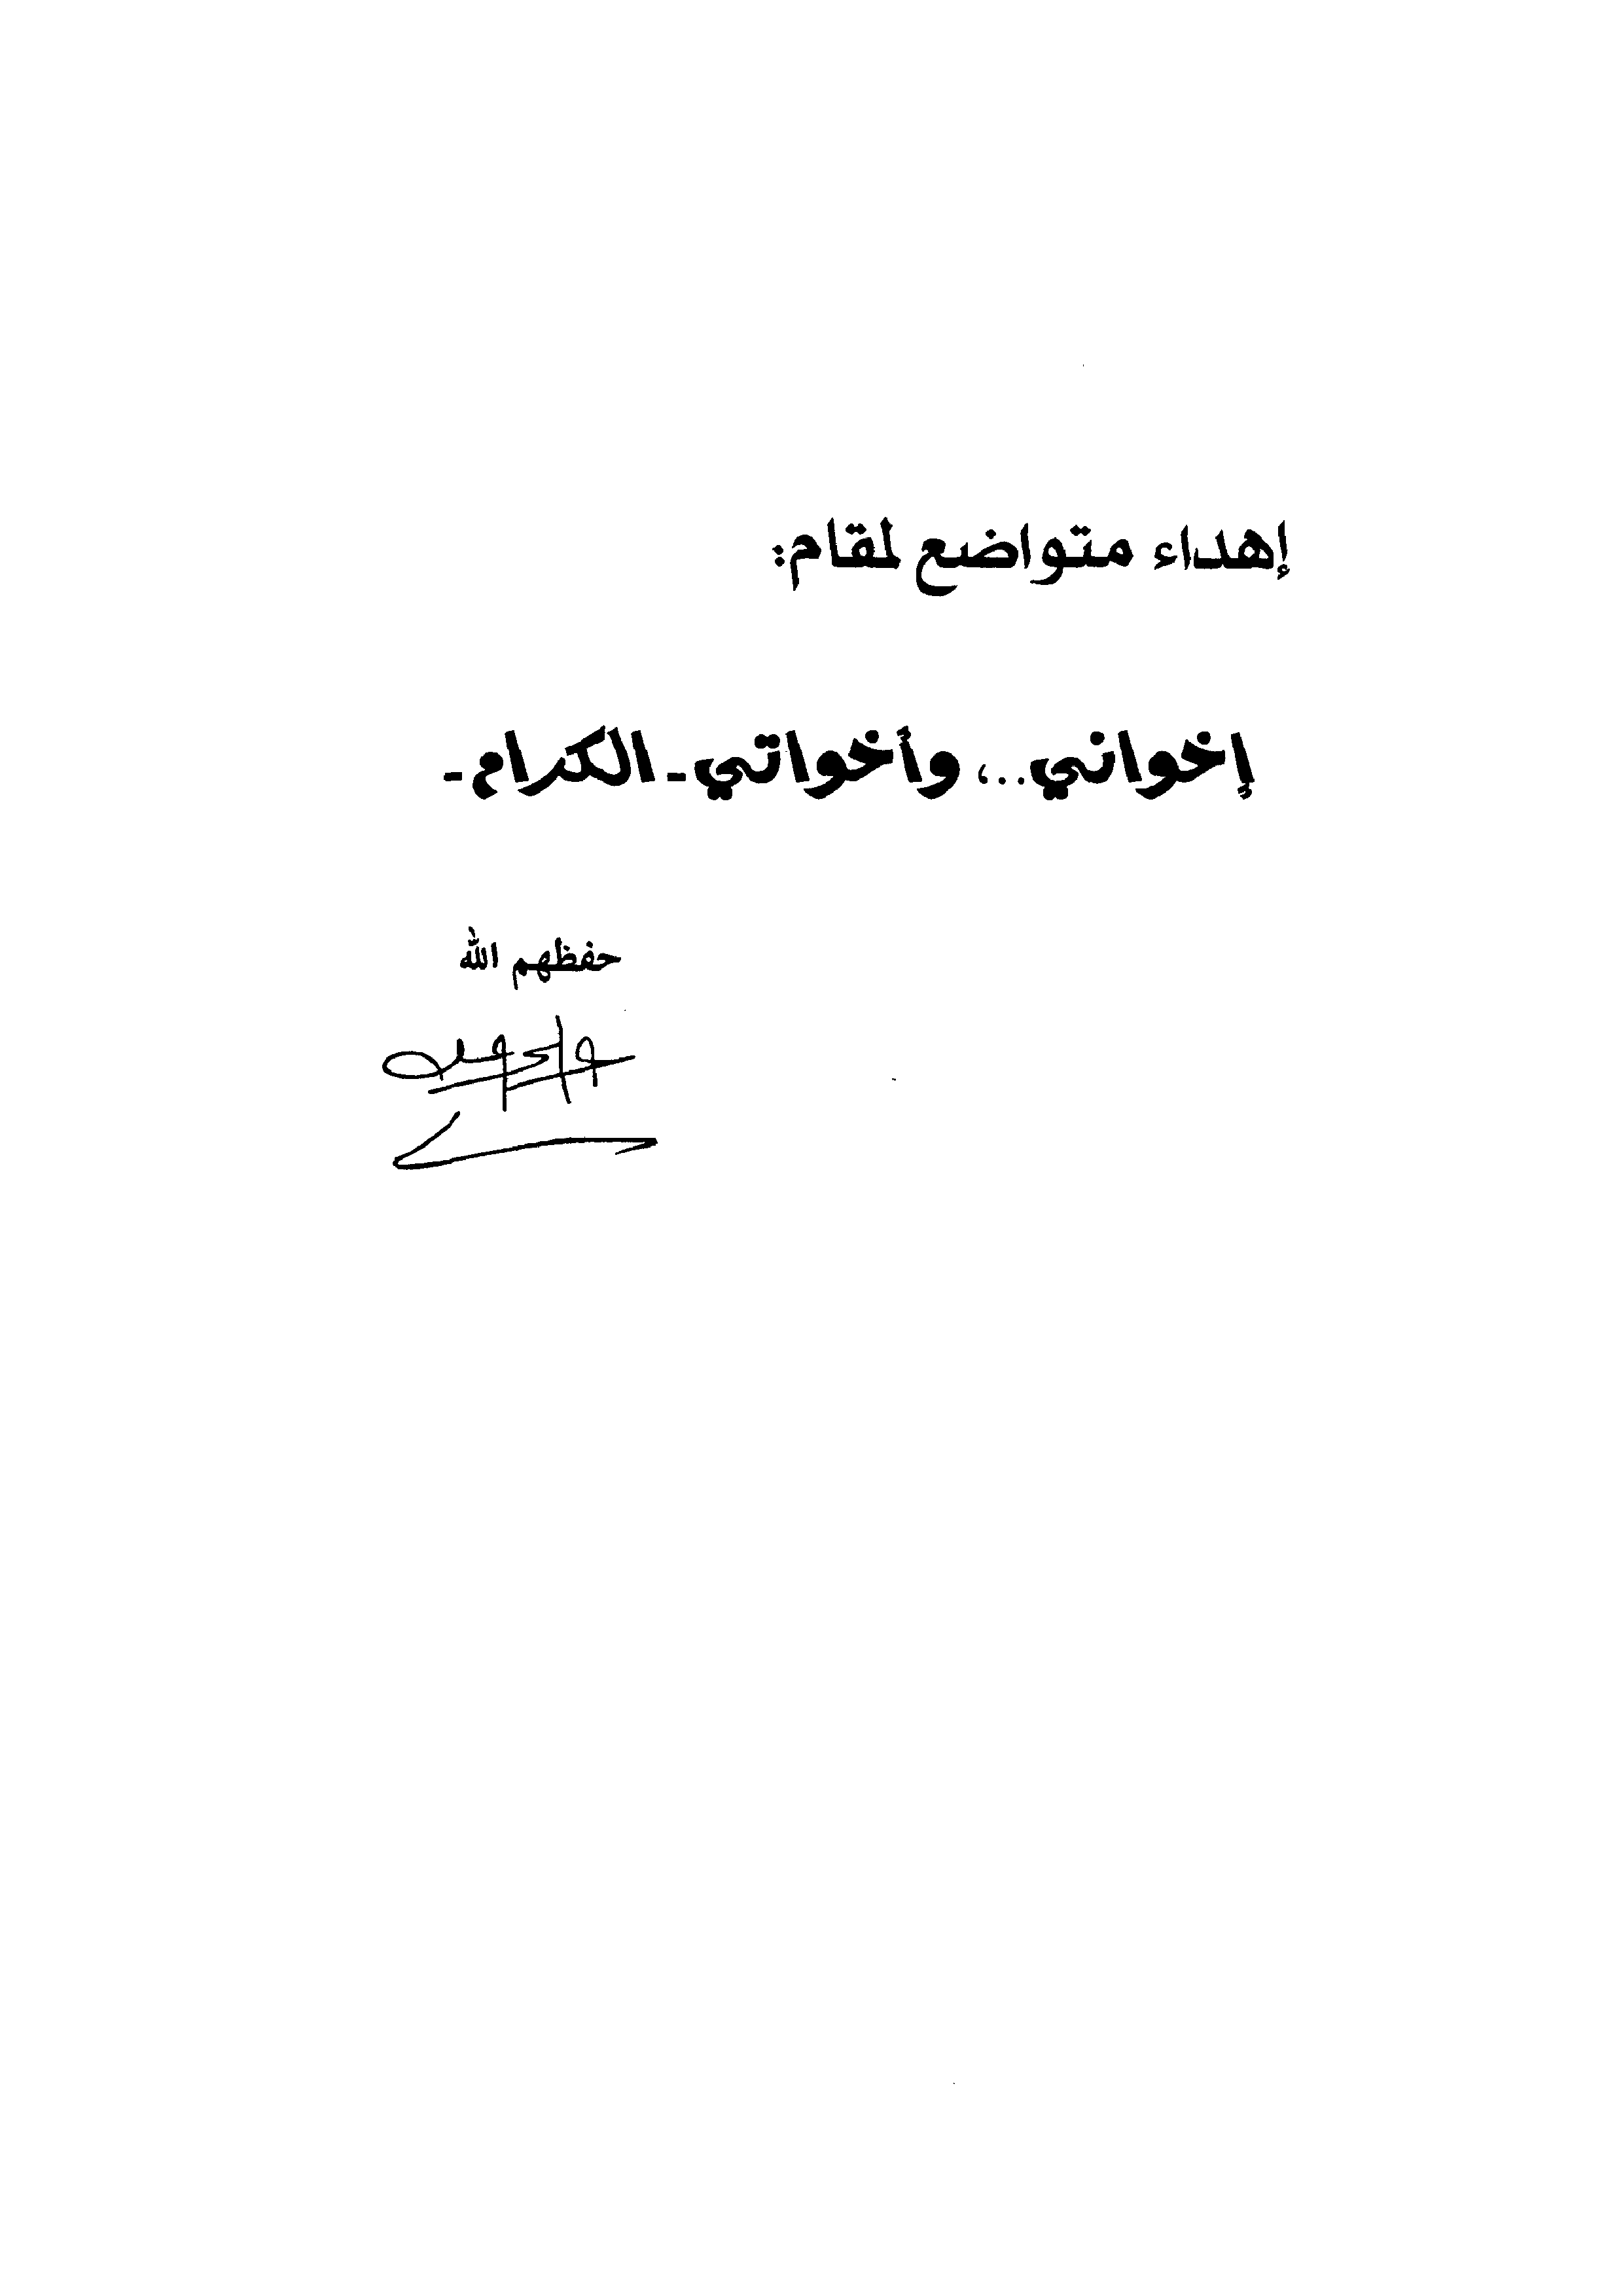 إهداء متواضع لمقام:
إخواني...، وأخواتي - الكرام -
حفظهم الله